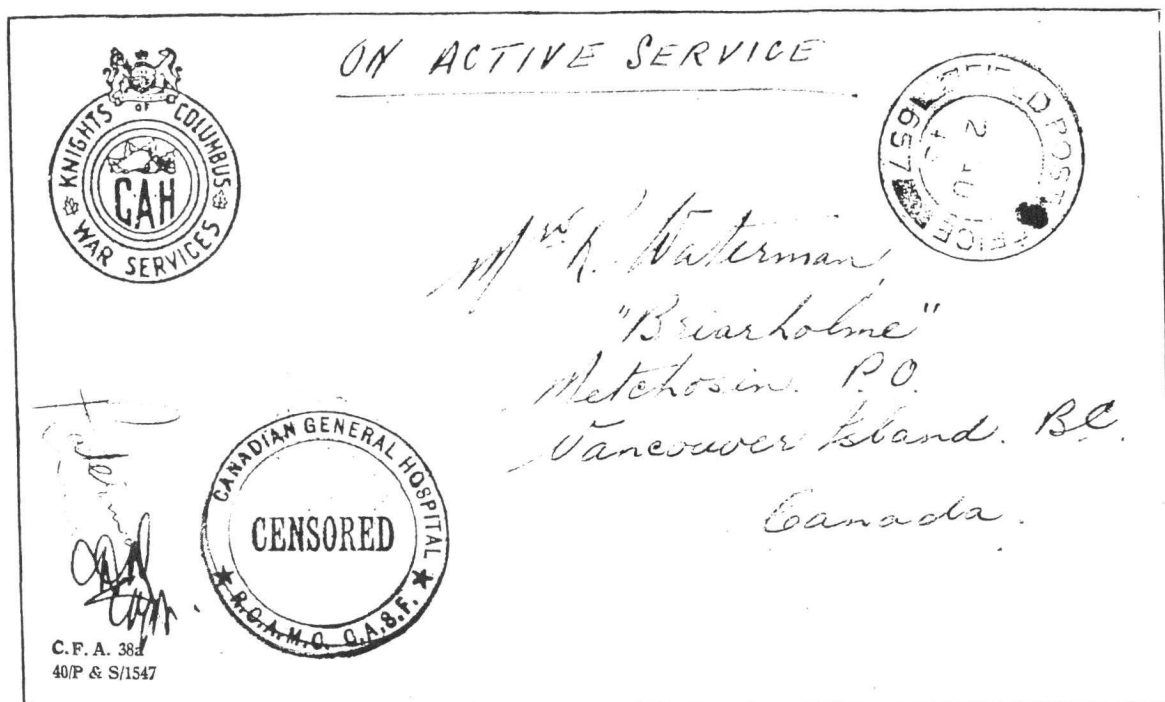 ON ACTIVE SERVICE
KNIGHTS OF COLUMBUS
CAH
WAR SERVICES
FIELD POST OFFICE
657
2 AU
43
Mrs R. Waterman,
"Briarholme"
Metchosin. P.O.
Vancouver Island. BC.
Canada.
CANADIAN GENERAL HOSPITAL
CENSORED
★ R.C.A.M.C. C.A.S.F. ★
C.F.A. 38a
40/P & S/1547